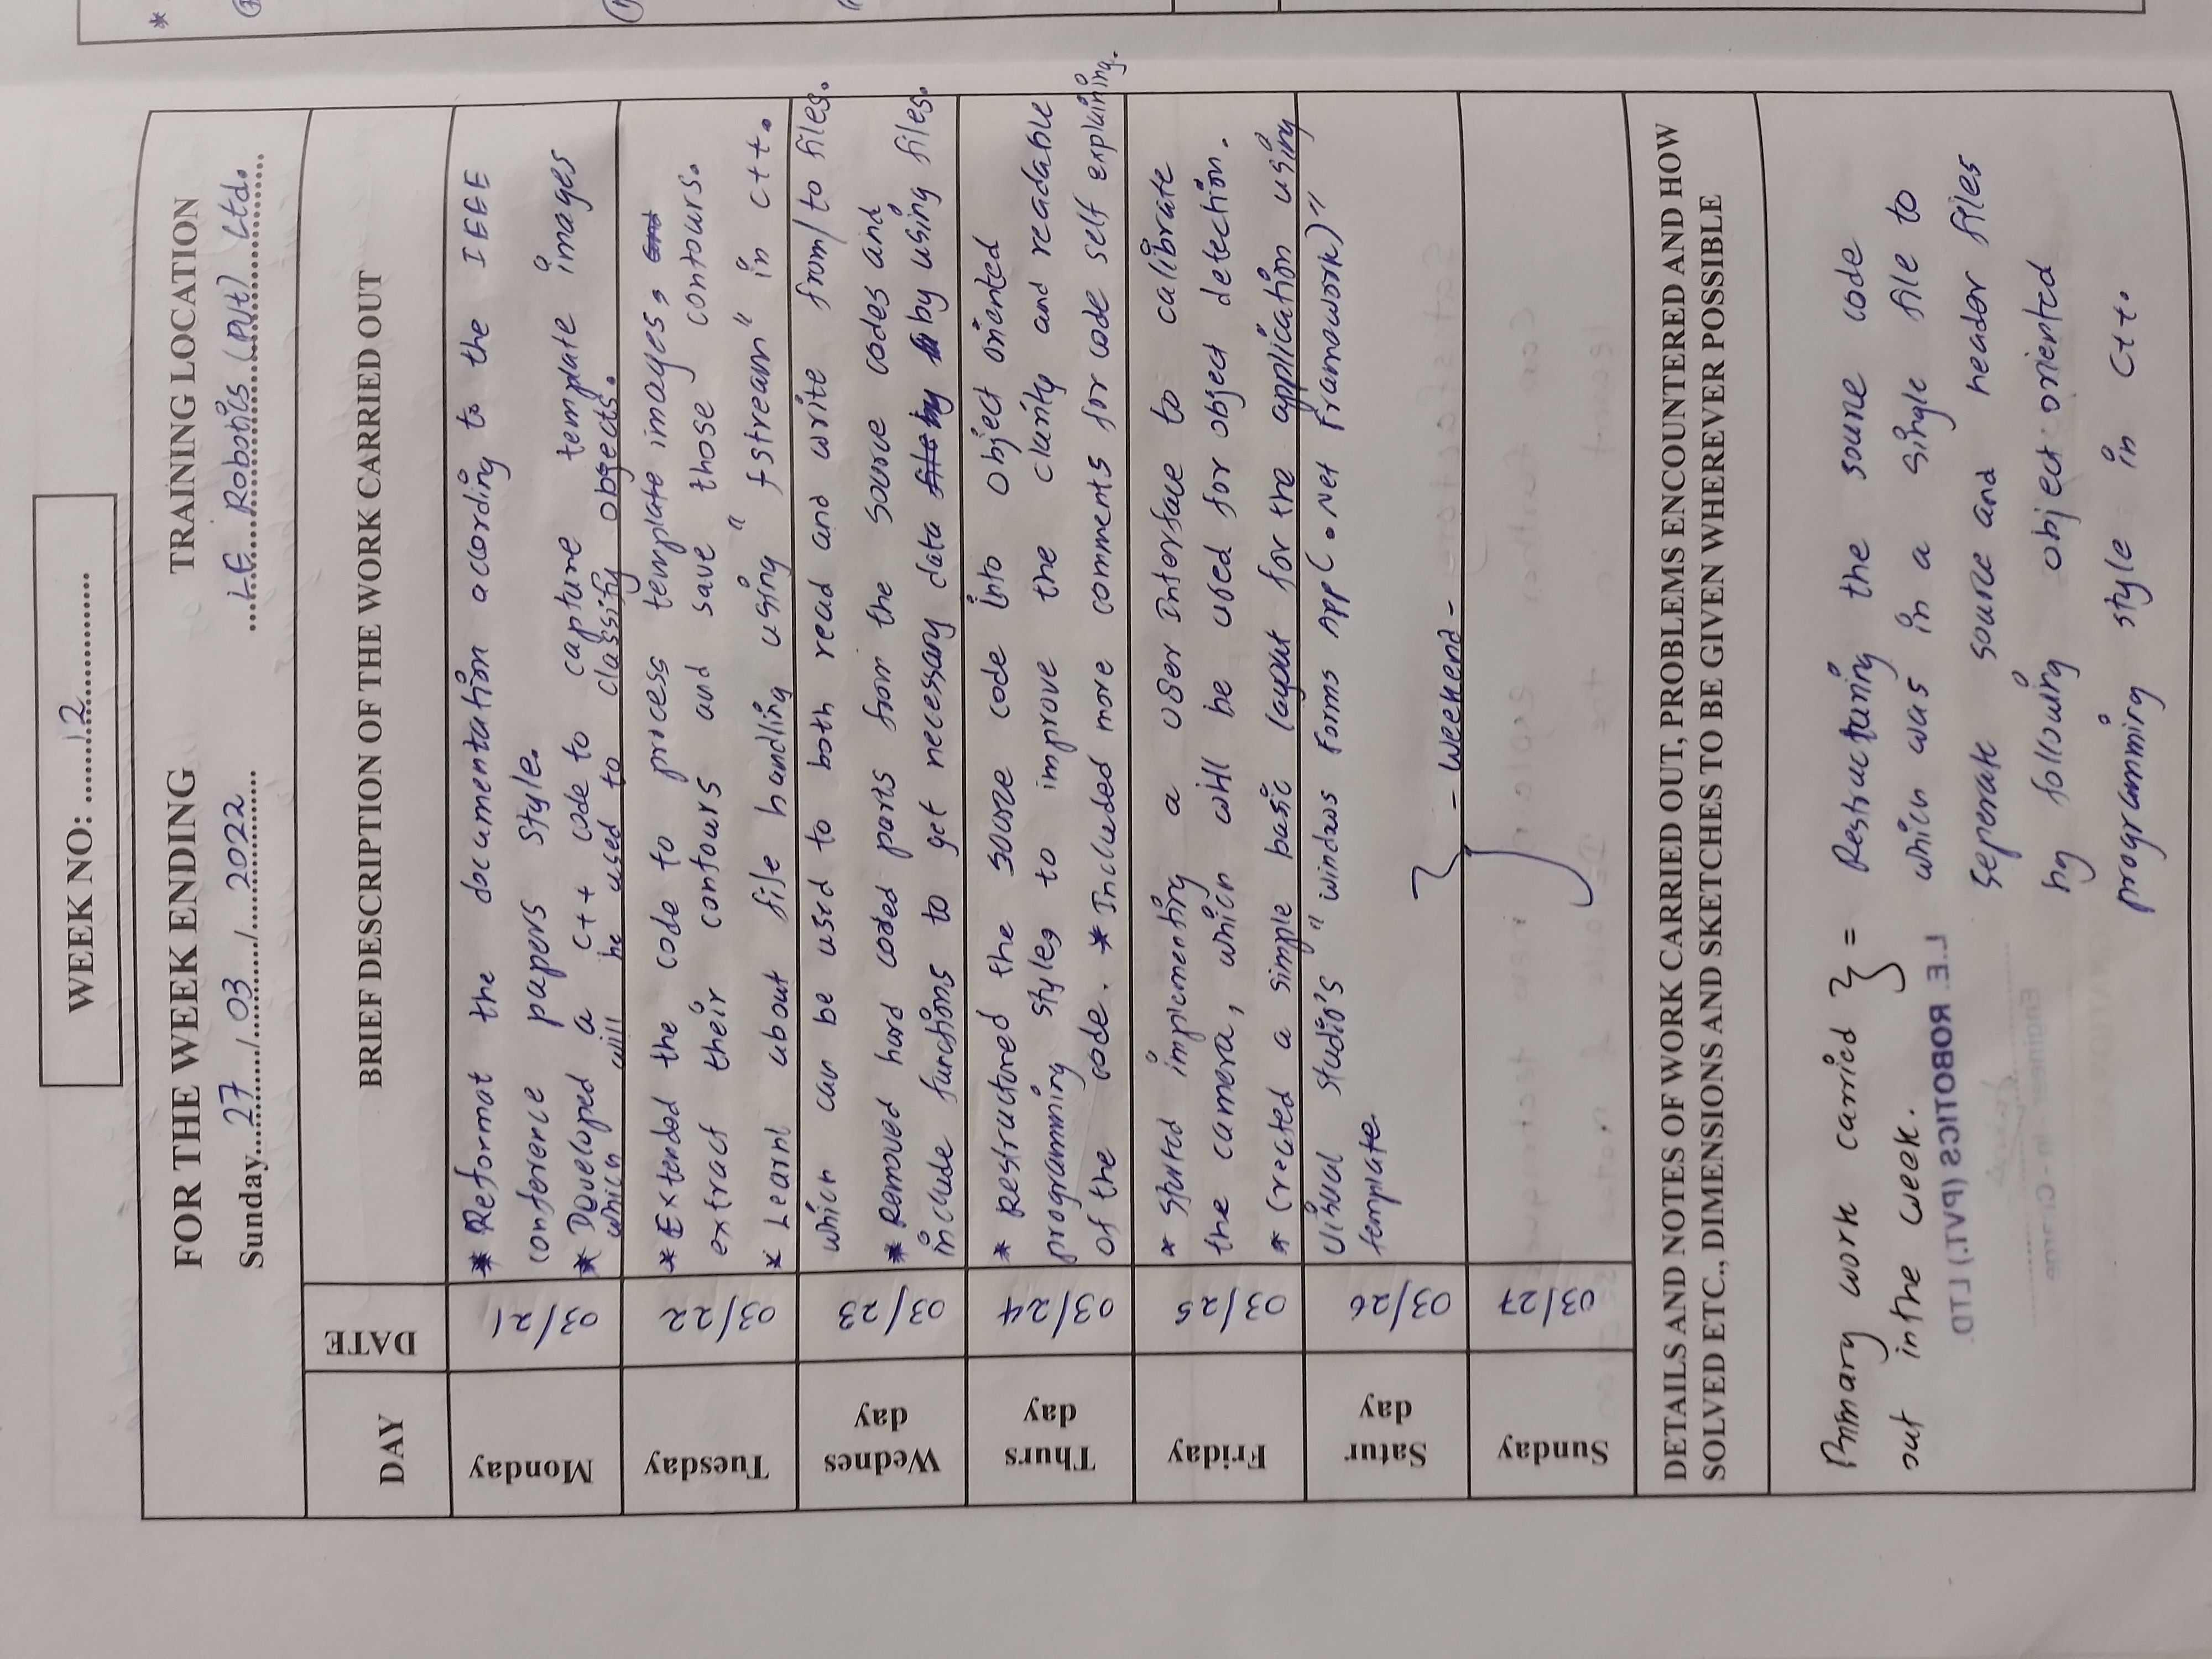 WEEK NO: ......12......
FOR THE WEEK ENDING
TRAINING LOCATION
Sunday...27.../...03.../...2022...
...LE Robotics (Pvt) Ltd.
DAY
DATE
BRIEF DESCRIPTION OF THE WORK CARRIED OUT
Monday
03/21
* Reformat the documentation according to the IEEE
conference papers style.
* Developed a C++ code to capture template images
which will be used to classify objects.
Tuesday
03/22
* Extended the code to process template images, and
extract their contours and save those contours.
* Learnt about file handling using "fstream" in C++.
Wednes
day
03/23
which can be used to both read and write from/to files.
* Removed hard coded parts from the source codes and
include functions to get necessary data file by by using files.
Thurs
day
03/24
* Restructured the source code into object oriented
programming style, to improve the clarity and readable
of the code. * Included more comments for code self explaining.
Friday
03/25
* Started implementing a User Interface to calibrate
the camera, which will be used for object detection.
* Created a simple basic layout for the application using
Satur
day
03/26
Visual Studio's "Windows Forms App (.Net Framework)"
template
- Weekend -
Sunday
03/27
DETAILS AND NOTES OF WORK CARRIED OUT, PROBLEMS ENCOUNTERED AND HOW
SOLVED ETC., DIMENSIONS AND SKETCHES TO BE GIVEN WHEREVER POSSIBLE
Primary work carried } =
out in the week.
Restructuring the source code
which was in a single file to
seperate source and header files
by following object oriented
programming style in C++.
L.E. ROBOTICS (PVT.) LTD.
Engineer - In - Charge